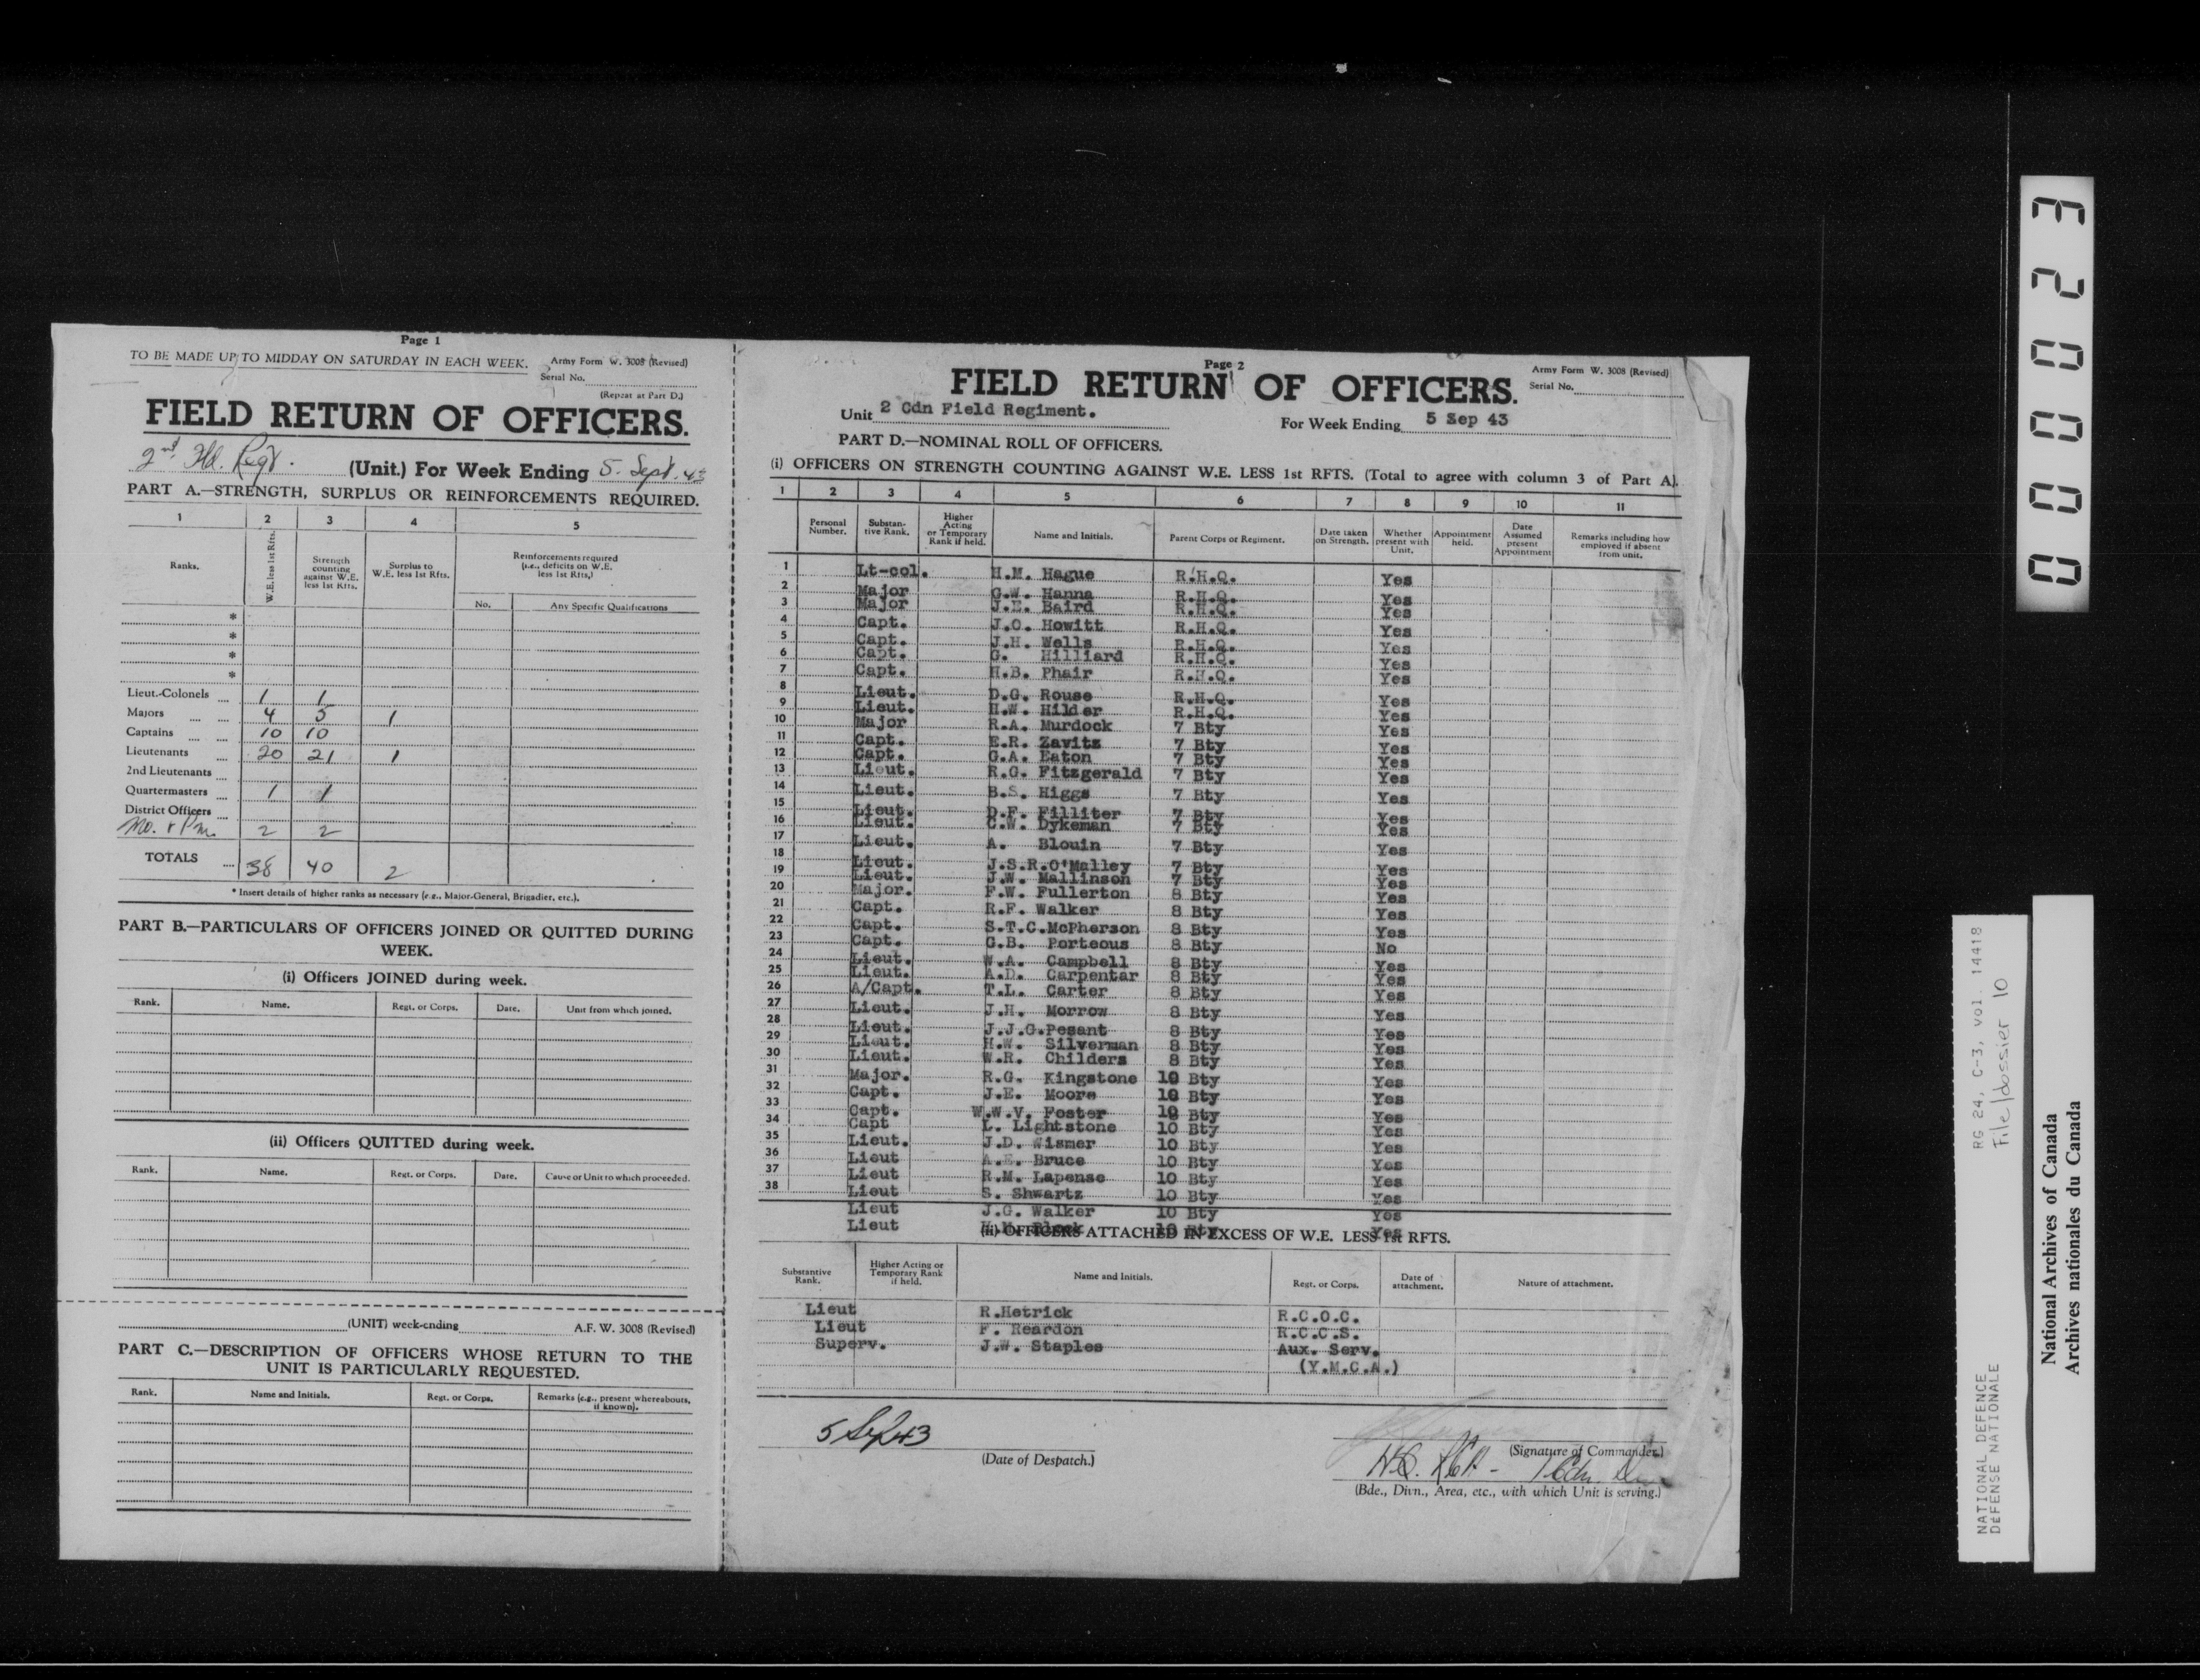 Page 1
TO BE MADE UP TO MIDDAY ON SATURDAY IN EACH WEEK. Army Form W. 3008 (Revised)
Serial No.
(Repeat at Part D.)
FIELD RETURN OF OFFICERS.
2nd. Fld. Regt. (Unit.) For Week Ending 5. Sept. 43
PART A.—STRENGTH, SURPLUS OR REINFORCEMENTS REQUIRED.
1 2 3 4 5
Ranks. W.E. less 1st Rfts. Strength counting against W.E. less 1st Rfts. Surplus to W.E. less 1st Rfts. Reinforcements required (i.e., deficits on W.E. less 1st Rfts.)
No. Any Specific Qualifications
*
*
*
*
Lieut.-Colonels 1 1
Majors 4 5 1
Captains 10 10
Lieutenants 20 21 1
2nd Lieutenants
Quartermasters 1 1
District Officers
Mo. & Pm. 2 2
TOTALS 38 40 2
* Insert details of higher ranks as necessary (e.g., Major-General, Brigadier, etc.).
PART B.—PARTICULARS OF OFFICERS JOINED OR QUITTED DURING WEEK.
(i) Officers JOINED during week.
Rank. Name. Regt. or Corps. Date. Unit from which joined.
(ii) Officers QUITTED during week.
Rank. Name. Regt. or Corps. Date. Cause or Unit to which proceeded.
(UNIT) week-ending A.F.W. 3008 (Revised)
PART C.—DESCRIPTION OF OFFICERS WHOSE RETURN TO THE UNIT IS PARTICULARLY REQUESTED.
Rank. Name and Initials. Regt. or Corps. Remarks (e.g., present whereabouts, if known).
Page 2
Army Form W. 3008 (Revised)
Serial No.
FIELD RETURN OF OFFICERS.
Unit 2 Cdn Field Regiment. For Week Ending 5 Sep 43
PART D.—NOMINAL ROLL OF OFFICERS.
(i) OFFICERS ON STRENGTH COUNTING AGAINST W.E. LESS 1st RFTS. (Total to agree with column 3 of Part A).
1 2 3 4 5 6 7 8 9 10 11
Personal Number. Substantive Rank. Higher Acting or Temporary Rank if held. Name and Initials. Parent Corps or Regiment. Date taken on Strength. Whether present with Unit. Appointment held. Date Assumed present Appointment Remarks including how employed if absent from unit.
1 Lt-col. H.M. Hague R.H.Q. Yes
2 Major G.W. Hanna R.H.Q. Yes
3 Major J.E. Baird R.H.Q. Yes
4 Capt. J.O. Howitt R.H.Q. Yes
5 Capt. J.H. Wells R.H.Q. Yes
6 Capt. G. Hilliard R.H.Q. Yes
7 Capt. H.B. Phair R.H.Q. Yes
8 Lieut. D.G. Rouse R.H.Q. Yes
9 Lieut. H.W. Hilder R.H.Q. Yes
10 Major R.A. Murdock 7 Bty Yes
11 Capt. E.R. Zavitz 7 Bty Yes
12 Capt. G.A. Eaton 7 Bty Yes
13 Lieut. R.G. Fitzgerald 7 Bty Yes
14 Lieut. B.S. Higgs 7 Bty Yes
15 Lieut. D.F. Filliter 7 Bty Yes
16 Lieut. C.W. Dykeman 7 Bty Yes
17 Lieut. A. Blouin 7 Bty Yes
18 Lieut. J.S.R.O'Malley 7 Bty Yes
19 Lieut. J.W. Mallinson 7 Bty Yes
20 Major. F.W. Fullerton 8 Bty Yes
21 Capt. R.F. Walker 8 Bty Yes
22 Capt. S.T.C.McPherson 8 Bty Yes
23 Capt. C.B. Porteous 8 Bty No
24 Lieut. W.A. Campbell 8 Bty Yes
25 Lieut. A.D. Carpentar 8 Bty Yes
26 A/Capt. T.L. Carter 8 Bty Yes
27 Lieut. J.H. Morrow 8 Bty Yes
28 Lieut. J.J.G.Pesant 8 Bty Yes
29 Lieut. H.W. Silverman 8 Bty Yes
30 Lieut. W.R. Childers 8 Bty Yes
31 Major. R.G. Kingstone 10 Bty Yes
32 Capt. J.E. Moore 10 Bty Yes
33 Capt. W.W.V. Foster 10 Bty Yes
34 Capt L. Lightstone 10 Bty Yes
35 Lieut. J.D. Wismer 10 Bty Yes
36 Lieut A.E. Bruce 10 Bty Yes
37 Lieut R.M. Lapense 10 Bty Yes
38 Lieut S. Shwartz 10 Bty Yes
Lieut J.G. Walker 10 Bty Yes
Lieut 10 Bty Yes
(ii) OFFICERS ATTACHED IN EXCESS OF W.E. LESS 1st RFTS.
Substantive Rank. Higher Acting or Temporary Rank if held. Name and Initials. Regt. or Corps. Date of attachment. Nature of attachment.
Lieut R.Hetrick R.C.O.C.
Lieut F. Reardon R.C.C.S.
Superv. J.W. Staples Aux. Serv.
(Y.M.C.A.)
5 Sep 43
(Date of Despatch.)
(Signature of Commander.)
HQ. RCA - 1 Cdn. Div
(Bde., Divn., Area, etc., with which Unit is serving.)
000023
NATIONAL DEFENCE RG 24, C-3, vol. 14418
DÉFENSE NATIONALE File/dossier 10
National Archives of Canada
Archives nationales du Canada